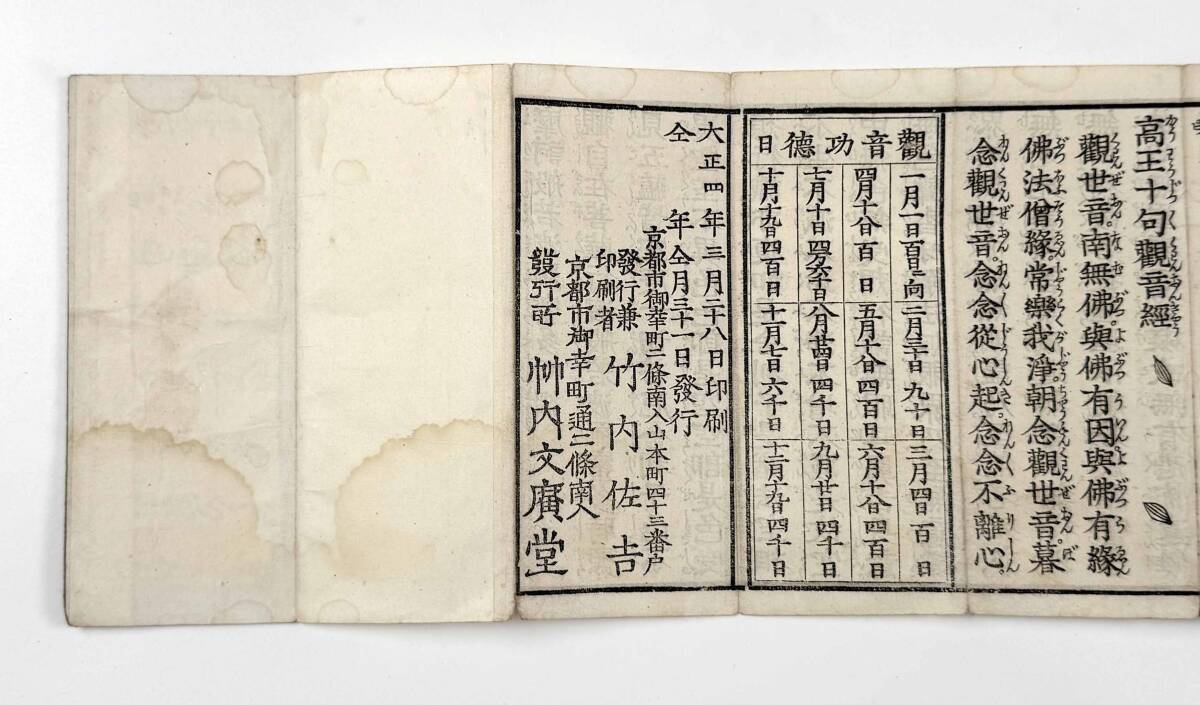 高王十句觀音經
觀世音。南無佛。與佛有因。與佛有緣
佛法僧緣。常樂我淨。朝念觀世音。暮
念觀世音。念念從心起。念念不離心。
觀音功德日
一月一日百日ニ向
二月三十日九十日
三月四日百日
四月十八日百日
五月十八日四百日
六月十八日四百日
七月十日四万六千日
八月廿四日四千日
九月廿日四千日
十月十九日四百日
十一月七日六千日
十二月十九日四千日
大正四年三月二十八日印刷
仝年仝月三十一日發行
京都市御幸町二條南入山本町四十三番戸
發行兼印刷者 竹内佐吉
京都市御幸町通二條南入
發行所 竹内文廣堂